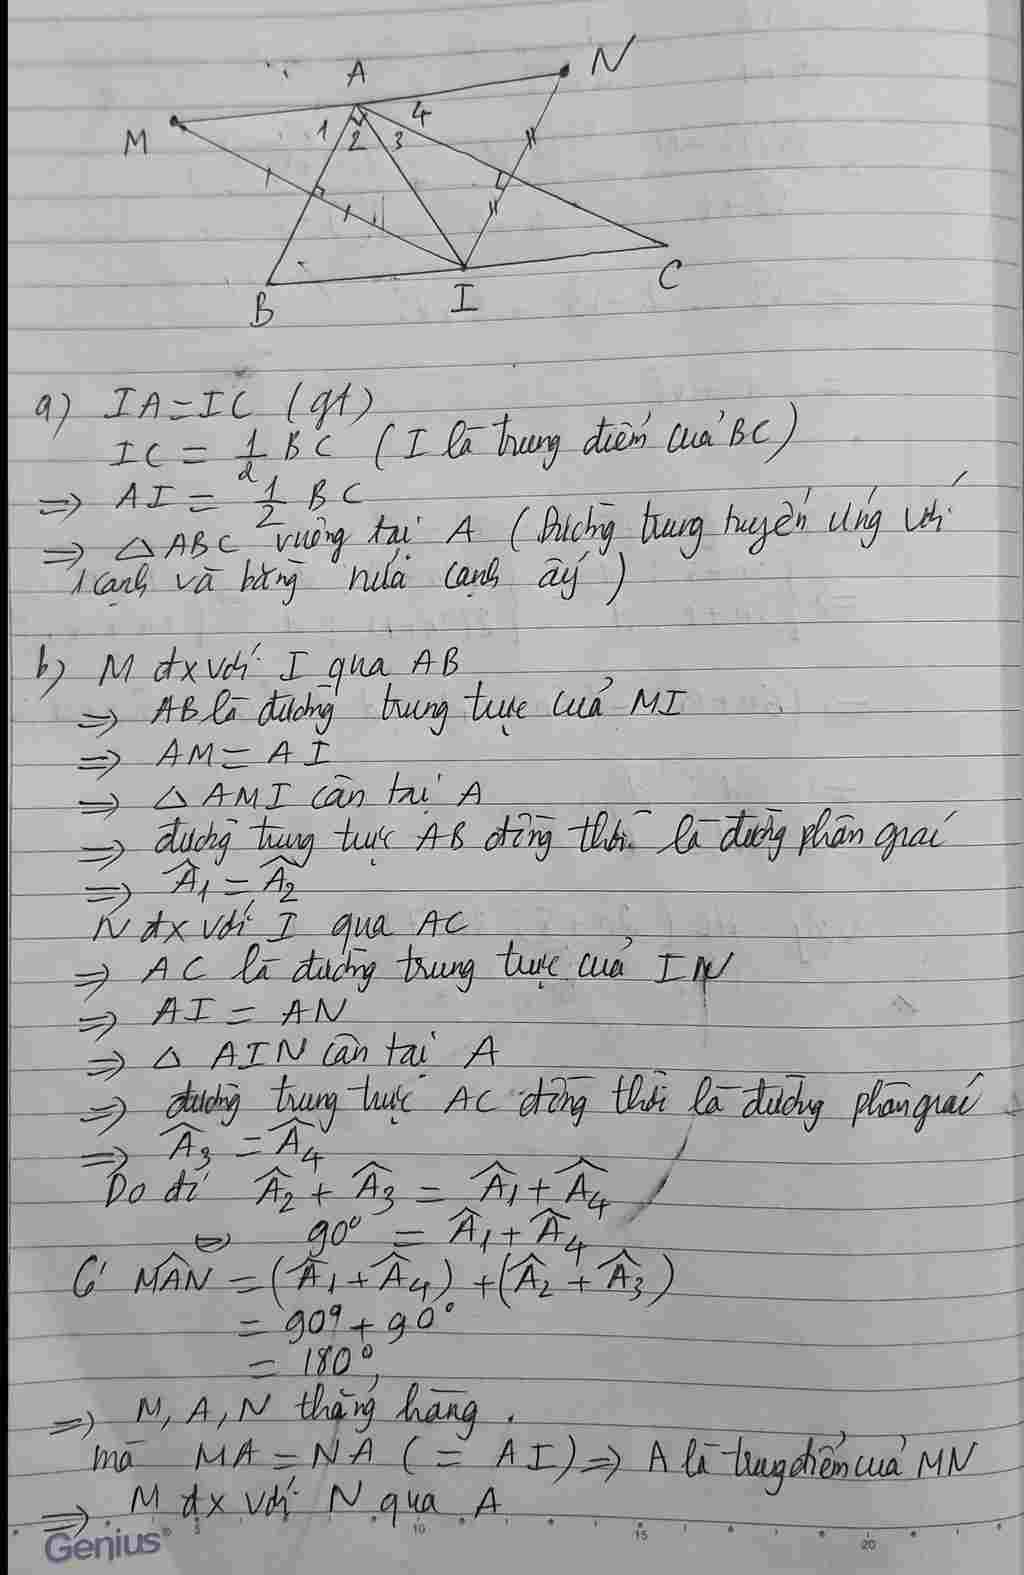 A
N
M
1
2
3
4
B
I
C
a) IA = IC (gt)
IC = 1/2 BC (I là trung điểm của BC)
=> AI = 1/2 BC
=> △ABC vuông tại A (Đường trung tuyến ứng với
1 cạnh và bằng nửa cạnh ấy)
b) M đx với I qua AB
=> AB là đường trung trực của MI
=> AM = AI
=> △AMI cân tại A
=> đường trung trực AB đồng thời là đường phân giác
=> Â₁ = Â₂
N đx với I qua AC
=> AC là đường trung trực của IN
=> AI = AN
=> △ AIN cân tại A
=> đường trung trực AC đồng thời là đường phân giác
=> Â₃ = Â₄
Do đó Â₂ + Â₃ = Â₁ + Â₄
90° = Â₁ + Â₄
Có MAN = (Â₁ + Â₄) + (Â₂ + Â₃)
= 90° + 90°
= 180°,
=> M, A, N thẳng hàng.
mà MA = NA (= AI) => A là trung điểm của MN
=> M đx với N qua A
Genius
5 10 15 20